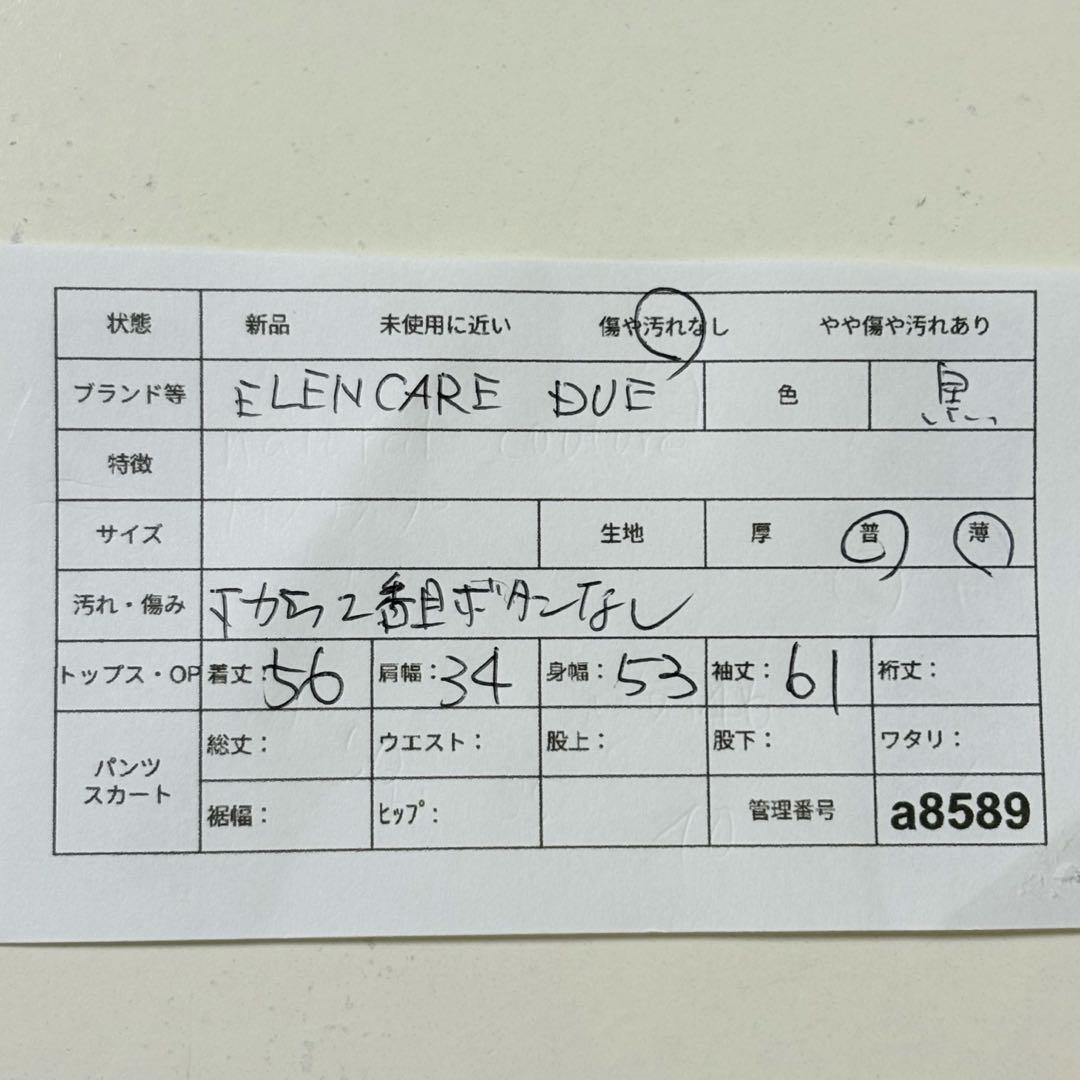 状態 新品 未使用に近い 傷や汚れなし やや傷や汚れあり
ブランド等 ELENCARE DUE 色 黒
特徴
サイズ 生地 厚 普 薄
汚れ・傷み 下から2番目ボタンなし
トップス・OP 着丈:56 肩幅:34 身幅:53 袖丈:61 裄丈:
パンツ スカート 総丈: ウエスト: 股上: 股下: ワタリ:
裾幅: ヒップ: 管理番号 a8589